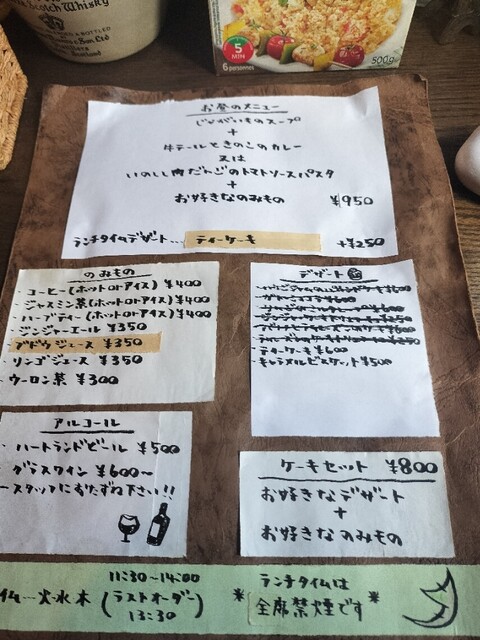 Scotch Whisky
5
MIN
6 personnes
500g
お昼のメニュー
じゃがいものスープ
+
牛テールときのこのカレー
又は
いのしし肉だんごのトマトソースパスタ
+
お好きなのみもの ¥950
ランチタイムデザート… ティーケーキ +¥250
のみもの
・コーヒー(ホットorアイス) ¥400
・ジャスミン茶(ホットorアイス) ¥400
・ハーブティー(ホットorアイス) ¥400
・ジンジャーエール ¥350
・ブドウジュース ¥350
・リンゴジュース ¥350
・ウーロン茶 ¥300
デザート
・ティーケーキ ¥600
・キャラメルビスケット ¥500
アルコール
・ハートランドビール ¥500
グラスワイン ¥600〜
スタッフにおたずね下さい!!
ケーキセット ¥800
お好きなデザート
+
お好きなのみもの
11:30〜14:00
イム…火水木(ラストオーダー)
13:30
* ランチタイムは
全席禁煙です *